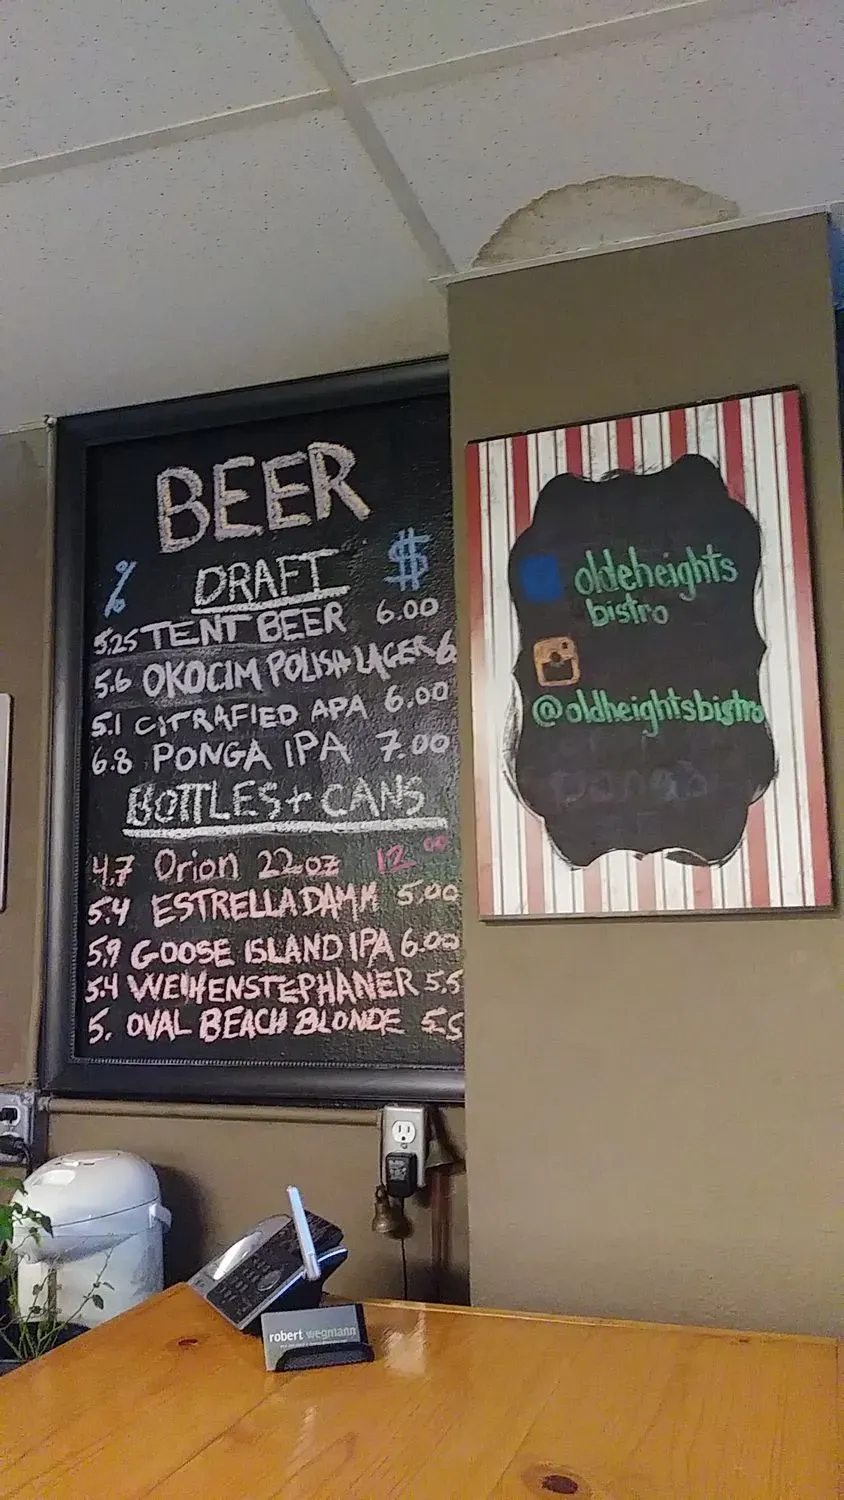 BEER
% DRAFT $
5.25 TENT BEER 6.00
5.6 OKOCIM POLISH LAGER 6
5.1 CITRAFIED APA 6.00
6.8 PONGA IPA 7.00
BOTTLES + CANS
4.7 Orion 22oz 12.00
5.4 ESTRELLA DAMM 5.00
5.9 GOOSE ISLAND IPA 6.00
5.4 WEIHENSTEPHANER 5.5
5. OVAL BEACH BLONDE 5.5
oldeheights
bistro
@oldheightsbistro
robert wegmann